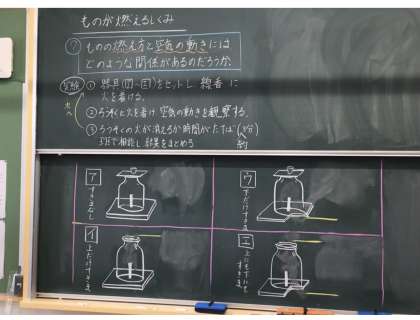 ものが燃えるしくみ
? ものの燃え方と空気の動きには
どのような関係があるのだろうか。
実験 ① 器具(ア〜エ)をセットし 線香に
火を着ける。
② ろうそくに火を着け 空気の動きを観察する。
③ ろうそくの火が消えるか時間がたてば(
分)
結果をまとめる
約
ア すきまなし
ウ 下だけすきま
イ 上だけすきま
エ 上にも下にもすきま